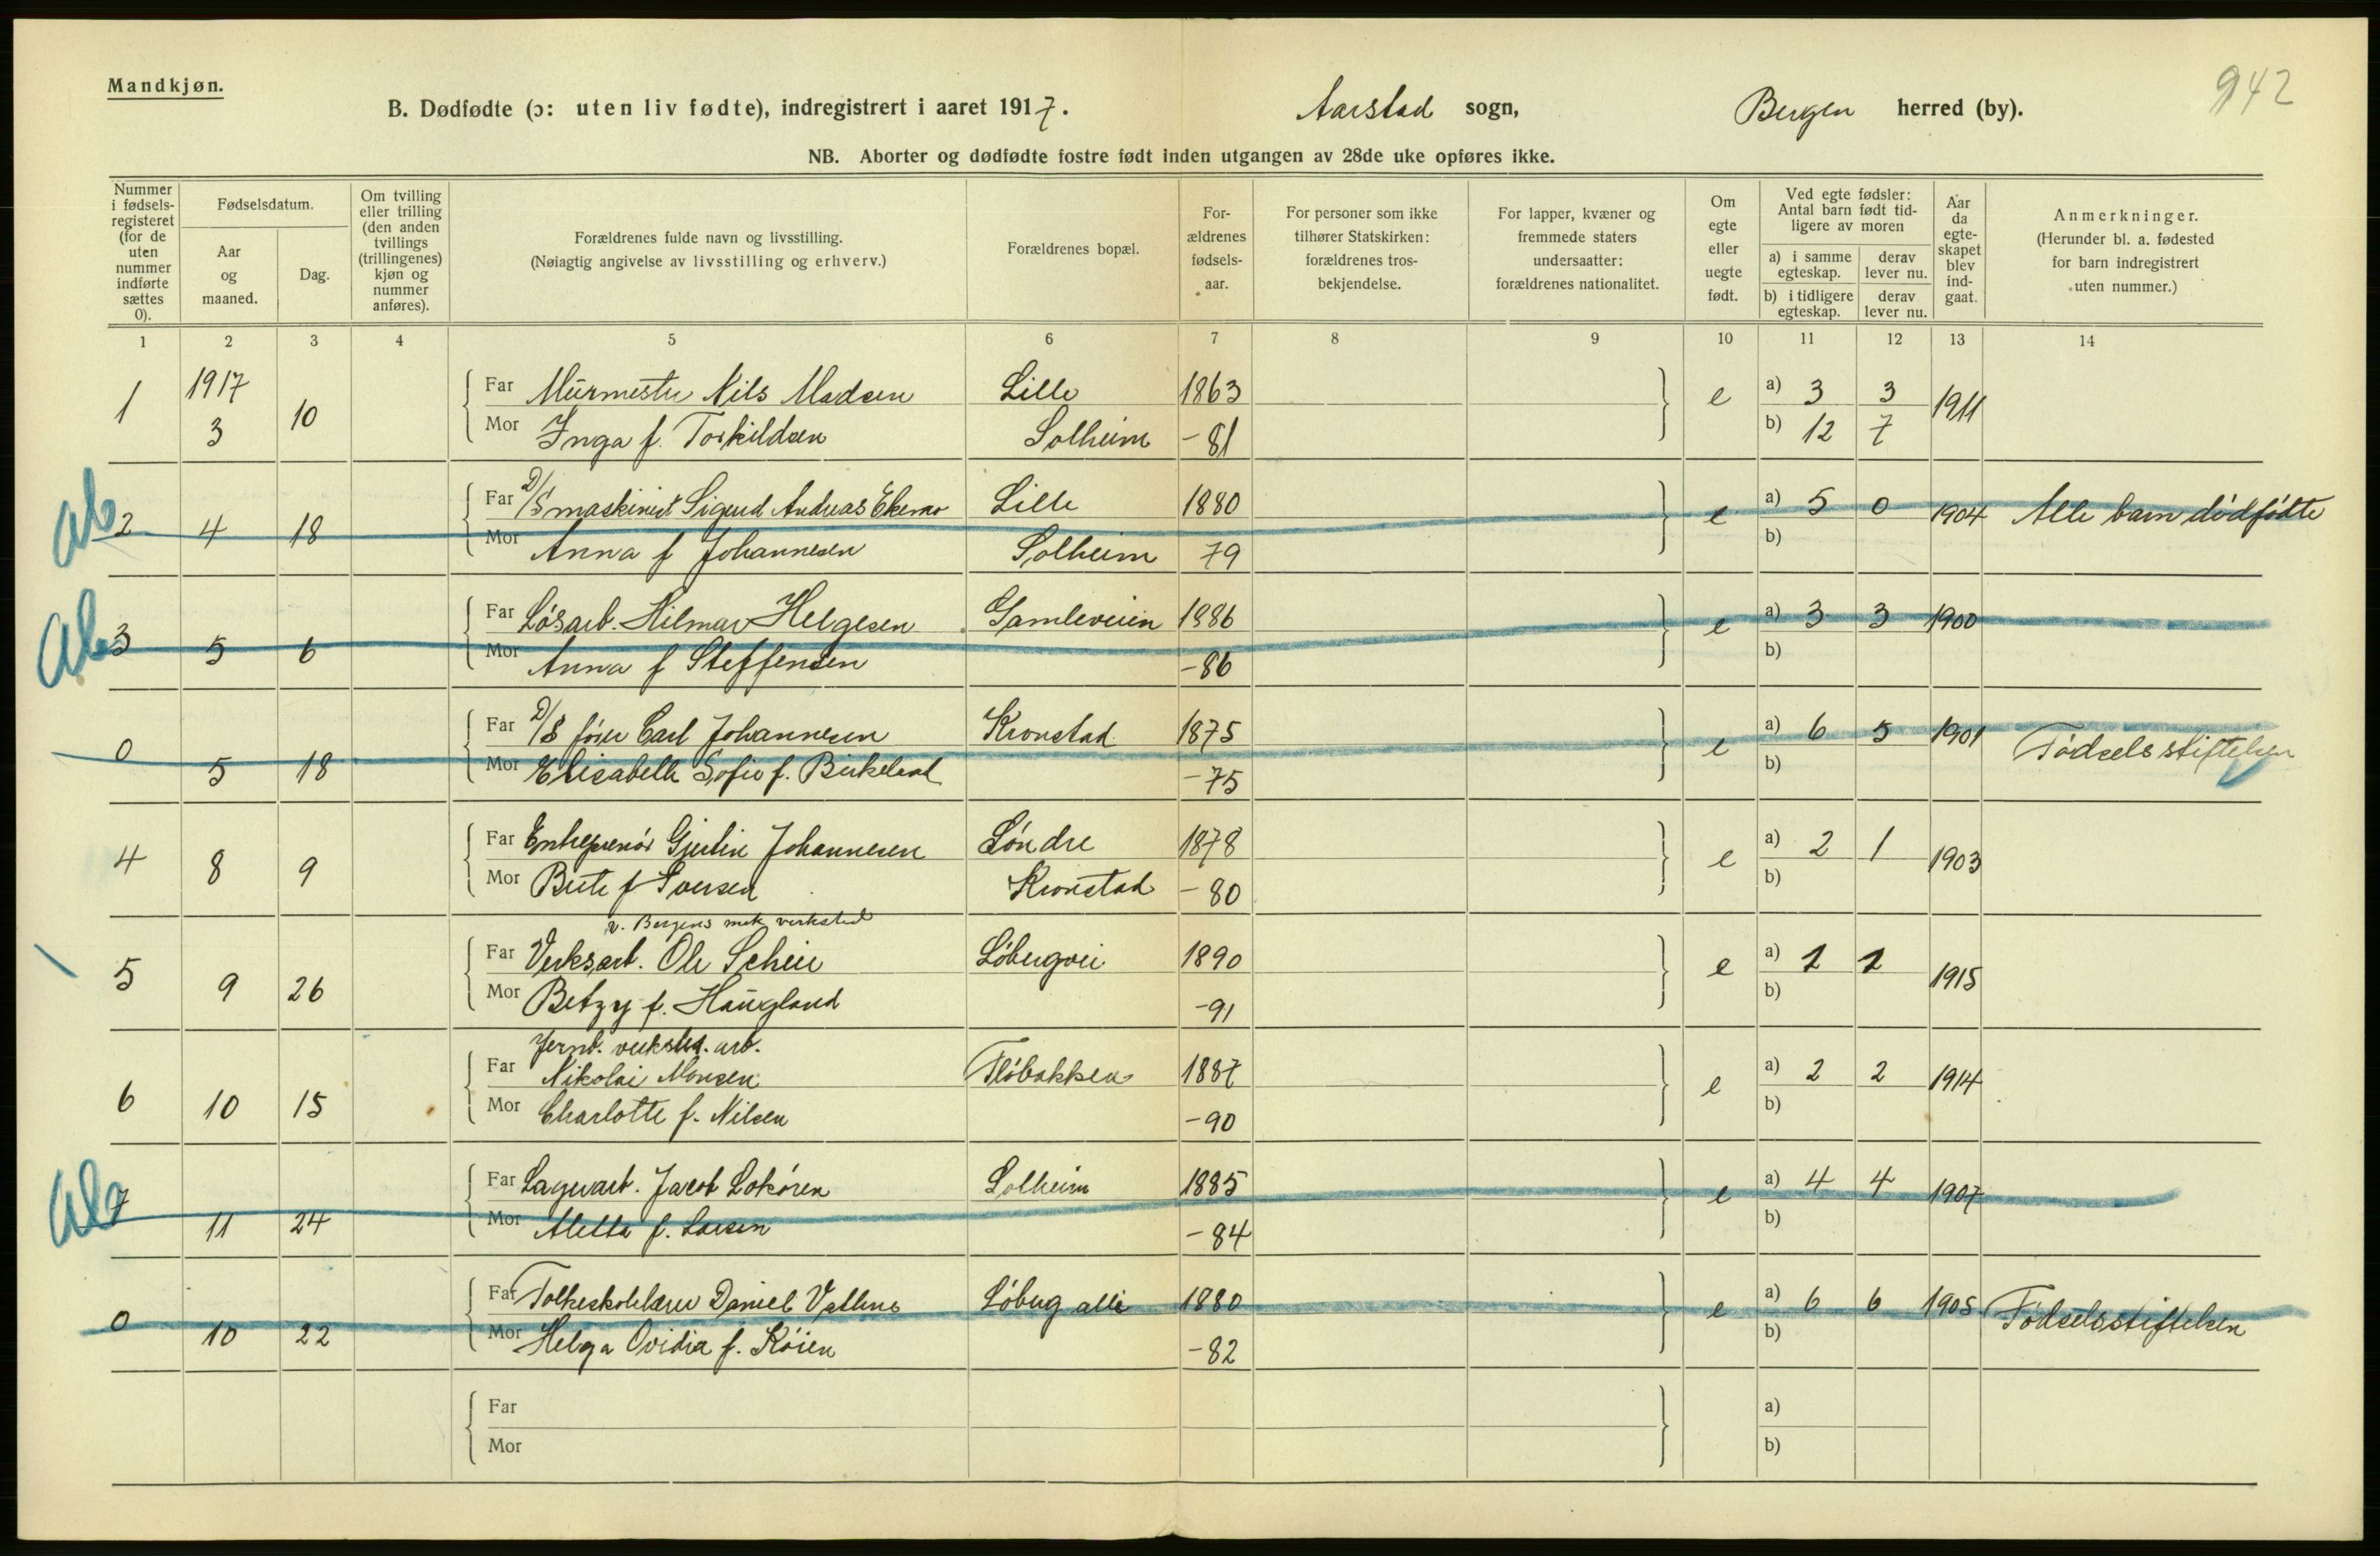 Mandkjøn.
942
B. Dødfødte (ɔ: uten liv fødte), indregistrert i aaret 1917. Aarstad sogn, Bergen herred (by).
NB. Aborter og dødfødte fostre født inden utgangen av 28de uke opføres ikke.
Nummer i fødsels-registeret (for de uten nummer indførte sættes 0).
Fødselsdatum.
Aar og maaned.
Dag.
Om tvilling eller trilling (den anden tvillings (trillingenes) kjøn og nummer anføres).
Forældrenes fulde navn og livsstilling.
(Nøiagtig angivelse av livsstilling og erhverv.)
Forældrenes bopæl.
For-ældrenes fødsels-aar.
For personer som ikke tilhører Statskirken: forældrenes tros-bekjendelse.
For lapper, kvæner og fremmede staters undersaatter: forældrenes nationalitet.
Om egte eller uegte født.
Ved egte fødsler: Antal barn født tid-ligere av moren
a) i samme egteskap. derav lever nu.
b) i tidligere egteskap. derav lever nu.
Aar da egte-skapet blev ind-gaat.
Anmerkninger.
(Herunder bl. a. fødested for barn indregistrert uten nummer.)
1 2 3 4 5 6 7 8 9 10 11 12 13 14
1 1917 3 10 Far Murmester Nils Madsen Lille 1863 e a) 3 3 1911
Mor Inga f. Torkildsen Solheim -81 b) 12 7
Ab 2 4 18 Far D/S maskinist Sigurd Andreas Lille 1880 e a) 5 0 1904 Alle barn dødfødte
Mor Anna f Johannesen Solheim 79 b)
Ab 3 5 6 Far Løsarb. Hilmar Helgesen Gamleveien 1886 e a) 3 3 1900
Mor Anna f Steffensen -86 b)
0 5 18 Far D/S fører Carl Johannesen Kronstad 1875 e a) 6 5 1901 Fødselsstiftelsen
Mor Elisabeth Sofie f. Birkeland -75 b)
4 8 9 Far Entreprenør Johannesen Søndre 1878 e a) 2 1 1903
Mor f Iversen Kronstad -80 b)
v. Bergens mek verksted
5 9 26 Far Verksarb. Ole Scheie Løbergvei 1890 e a) 1 1 1915
Mor Betzy f. Haugland -91 b)
Jernb. verksted. arb.
6 10 15 Far Nikolai Monsen Fløbakken 1887 e a) 2 2 1914
Mor Charlotte f. Nilsen -90 b)
Ab 7 11 24 Far Lagerarb. Jacob Lokøren Solheim 1885 e a) 4 4 1907
Mor Aletta f. Larsen -84 b)
0 10 22 Far Folkeskolelærer Daniel Løberg alle 1880 e a) 6 6 1905 Fødselsstiftelsen
Mor Helga Ovidia f. Køien -82 b)
Far a)
Mor b)